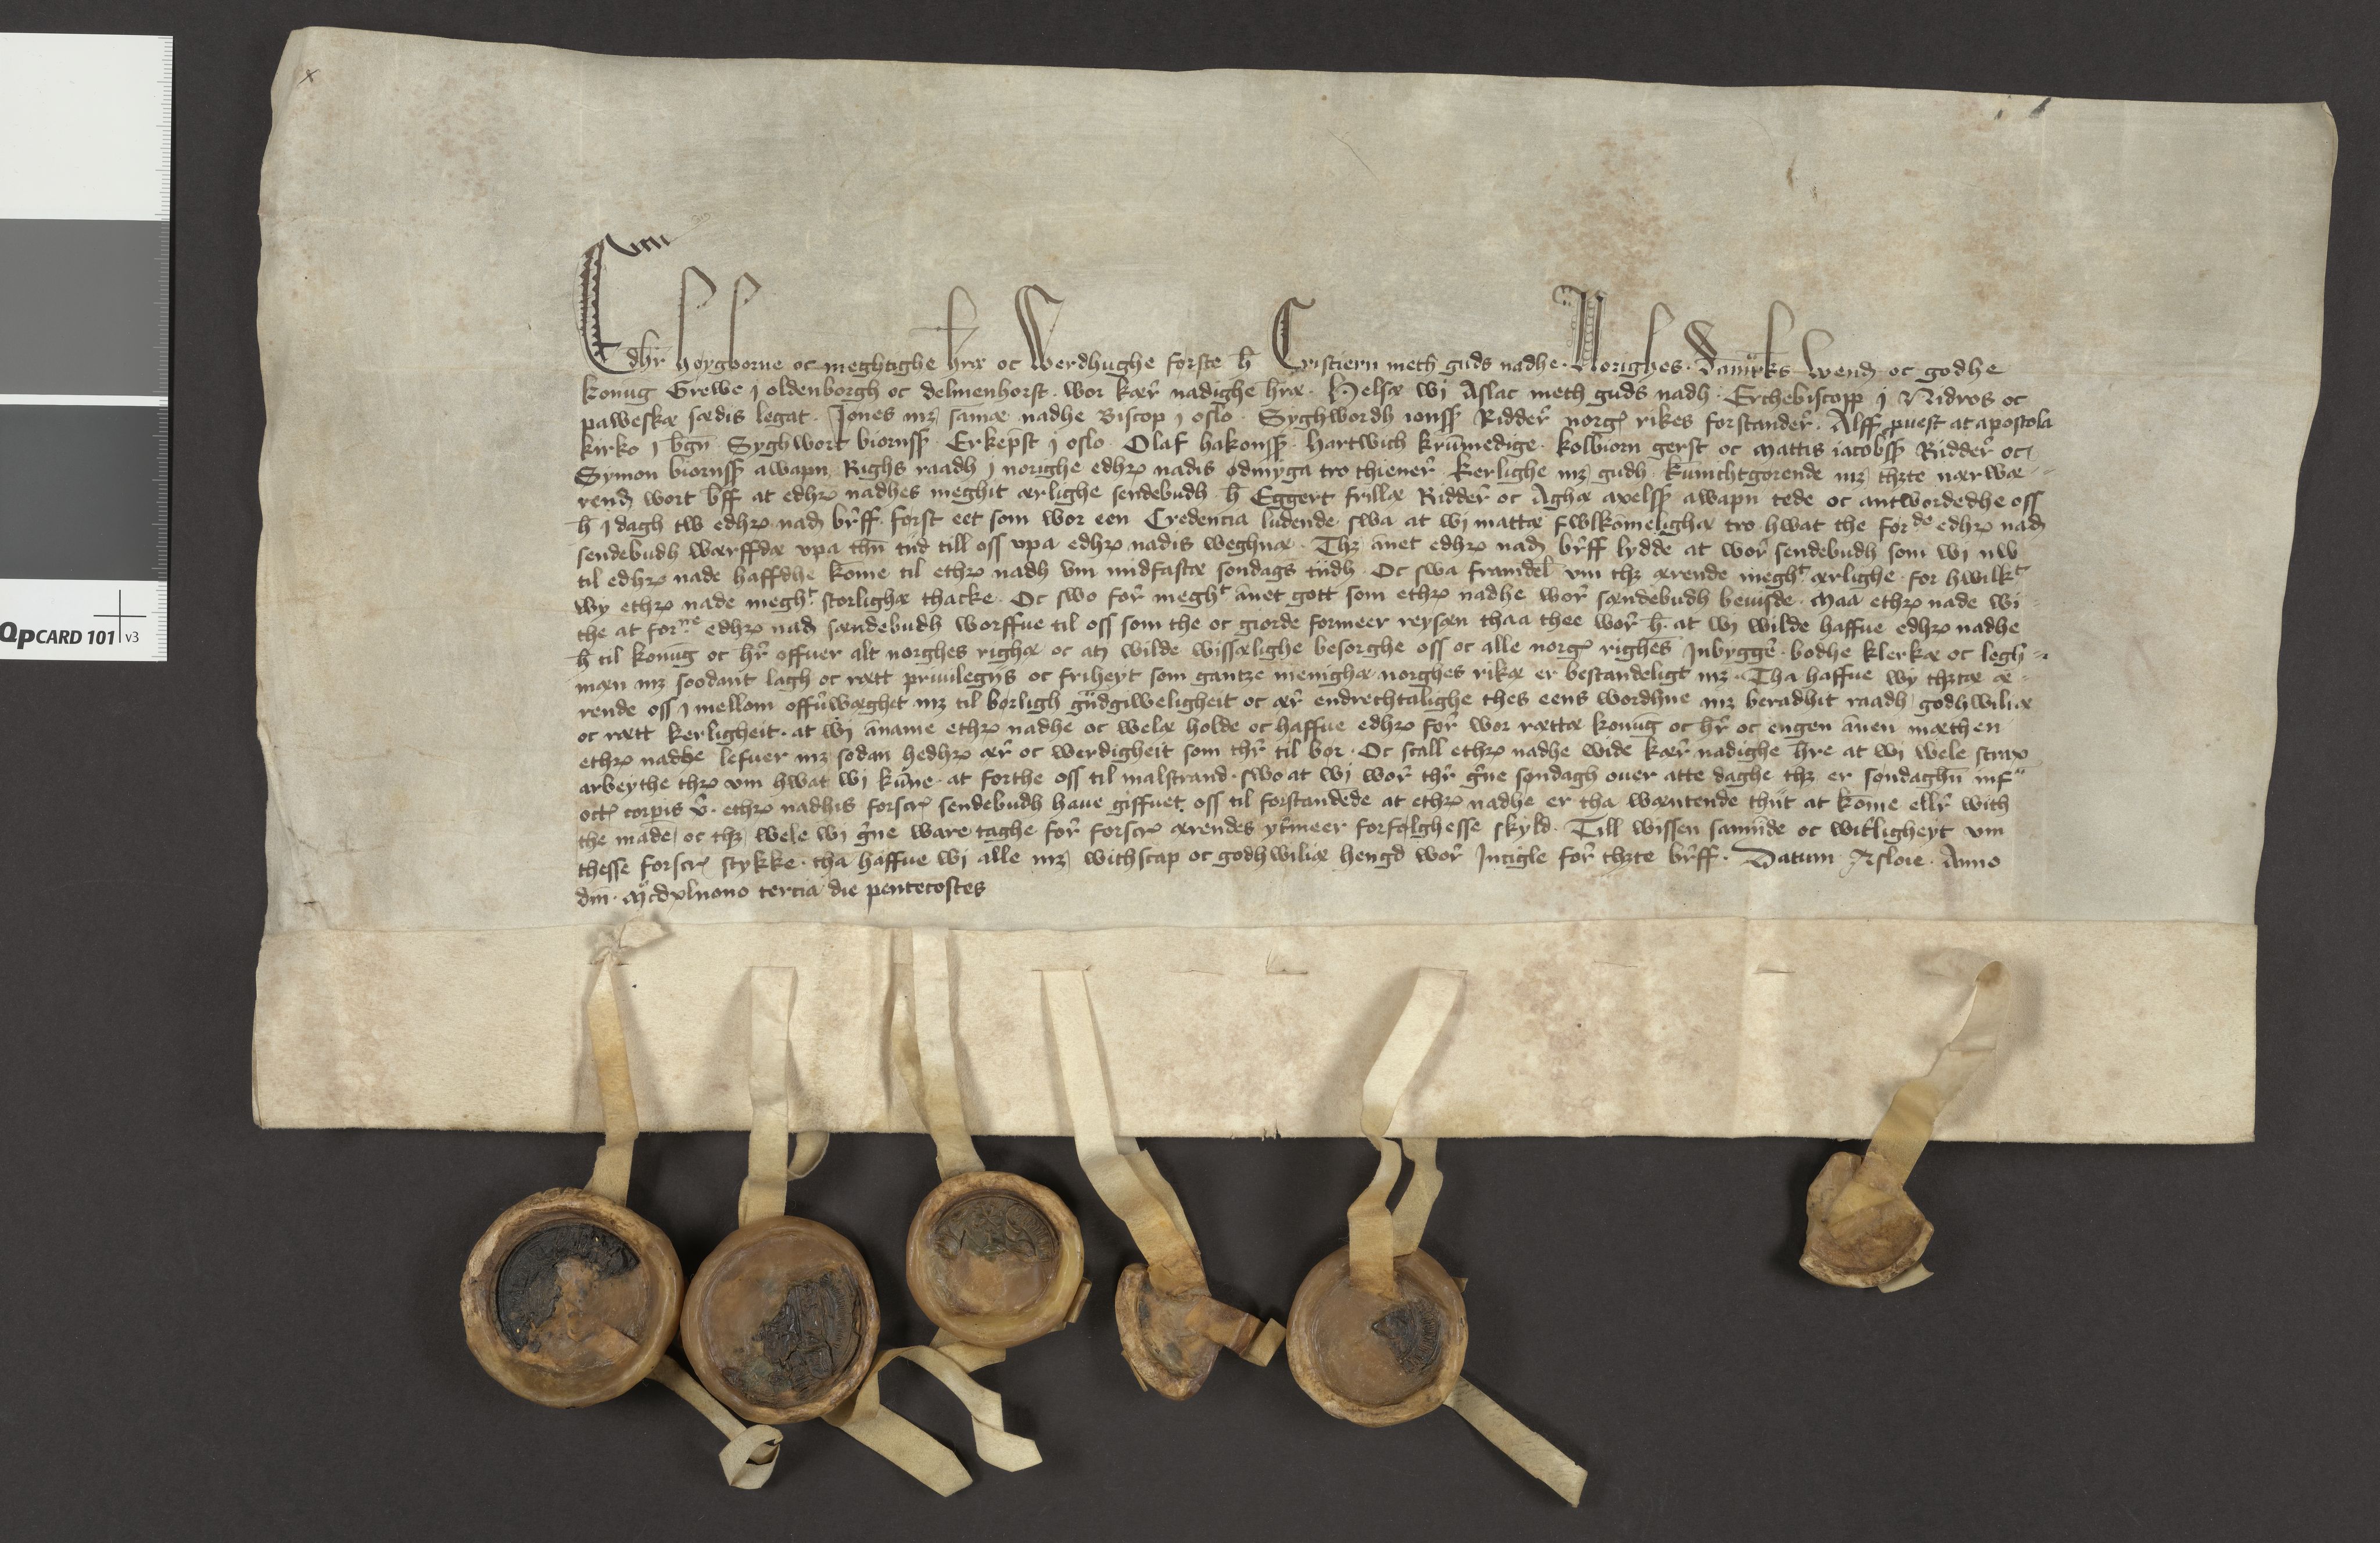 Edhr̄ høygborne oc meghtighe hr̄æ oc werdhughe forste h̄ Cristiern meth guds nadhe · Norighes · Dāmr̄ks wend̄ oc godhe
konūg Grewe j oldenborgh oc delmenhorst · wor kær̄ nadighe hr̄æ · Helsæ wj Aslac meth guds nadh · Erchebiscopp j Nidros oc
paweskæ sædis legat · Jones mz sāmæ nadhe Biscop j oslo · Syghwordh ionss̄ Ridder̄ norgꝭ rikes forstander̄ · Alff puest at apostola
kirko j bgn̄ · Syghwort biornss̄ · Erkep̄st j oslo · Olaf hakonss̄ · Hartwich krūmedige · kolbiorn gerst oc Mattis iacobss̄ Ridder̄ oc
Symon biornss̄ awapn Righs raadh j norighe edhrꝭ nadis ødmyga tro thiener̄ kerlighe mz gudh · kūnichtgørende mz thzte nærwæ-
rend̄ wort b̄ff at edhrꝭ nadhes meghit ærlighe sendebudh h̄ Eggert frillæ Ridder̄ oc Aghæ axelss̄ awapn tede oc antwordedhe oss
h̄ j dagh tw edhrꝭ nad̄ br̄ff · først eet som wor een Credencia lūdende swa at wj mattæ fwlkōmelighæ tro hwat the for de edhrꝭ nad̄
sendebudh wærffdæ vpa thn̄ tiid till oss vpa edhrꝭ nadis weghnæ · Thz ānet edhrꝭ nad̄ br̄ff lydde at wor̄ sendebudh som wj nw
til edhrꝭ nade haffdhe kōme til ethrꝭ nadh vm midfastæ søndags tiidh · Oc swa framdel vm thz ærende megh t ærlighe · for hwilk t
wy ethrꝭ nade megh t storlighæ thacke · Oc swo for̄ megh t ānet gott som ethrꝭ nadhe wor̄ sændebudh beuisde · Maa ethrꝭ nade wi-
the at for ne edhrꝭ nad̄ sændebudh worffue til oss som the oc giorde formeer reysæn thaa thee wor̄ h̄ · at wj wilde haffue edhrꝭ nadhe
h̄ til konūg oc hr̄ offuer alt norghes righæ oc atj wilde wissælighe besørghe oss oc alle norgꝭ righēs Jnbyggēr · bodhe klerkæ oc legh-
mæn mz soodant lagh oc rætt priuilegijs oc friheyt som gantze menighæ norghes rikæ er bestandeligt mz · Tha haffue wy thztæ æ-
rende oss j mellom offūwæghet mz til børligh gudgiweligheit oc ær̄ endrechtalighe thes eens wordhne mz beradhit raadh godhwiliæ
oc rætt kerligheit · at wj āname ethrꝭ nadhe oc welæ holde oc haffue edhrꝭ for̄ wor rættæ konūg oc hr̄ oc engen ānen mæthen
ethrꝭ nadhe lefuer mz sodan hedhrꝭ ær̄ oc werdigheit som thr̄ til bør · Oc scall ethrꝭ nadhe wide kær̄ nadighe hr̄e at wj wele strax
arbeythe thrꝭ vm hwat wj kūne · at forthe oss til malstrand · swo at wj wor̄ thr̄ ḡne søndagh ouer atte daghe thz er søndaghn̄ inf ra
octꝭ corpis x̄ · ethrꝭ nadhis forscrꝭ sendebudh haue giffuet oss til forstandēde at ethrꝭ nadhe er tha wæntende thiit at kōme ellr̄ with
the made oc thz wele wj ḡne ware taghe for̄ forscrꝭ ærendes ytmeer forfølghesse skyld · Till wissen sannīde oc witligheyt vm
thesse forscrꝭ stykke · tha haffue wj alle mz withscap oc godhwiliæ hengd wor̄ Incigle for̄ thzte br̄ff · Datum Asloie · Anno
dm̄ · Mcdxlnono tercia die pentecostes
QPCARD 101 v3